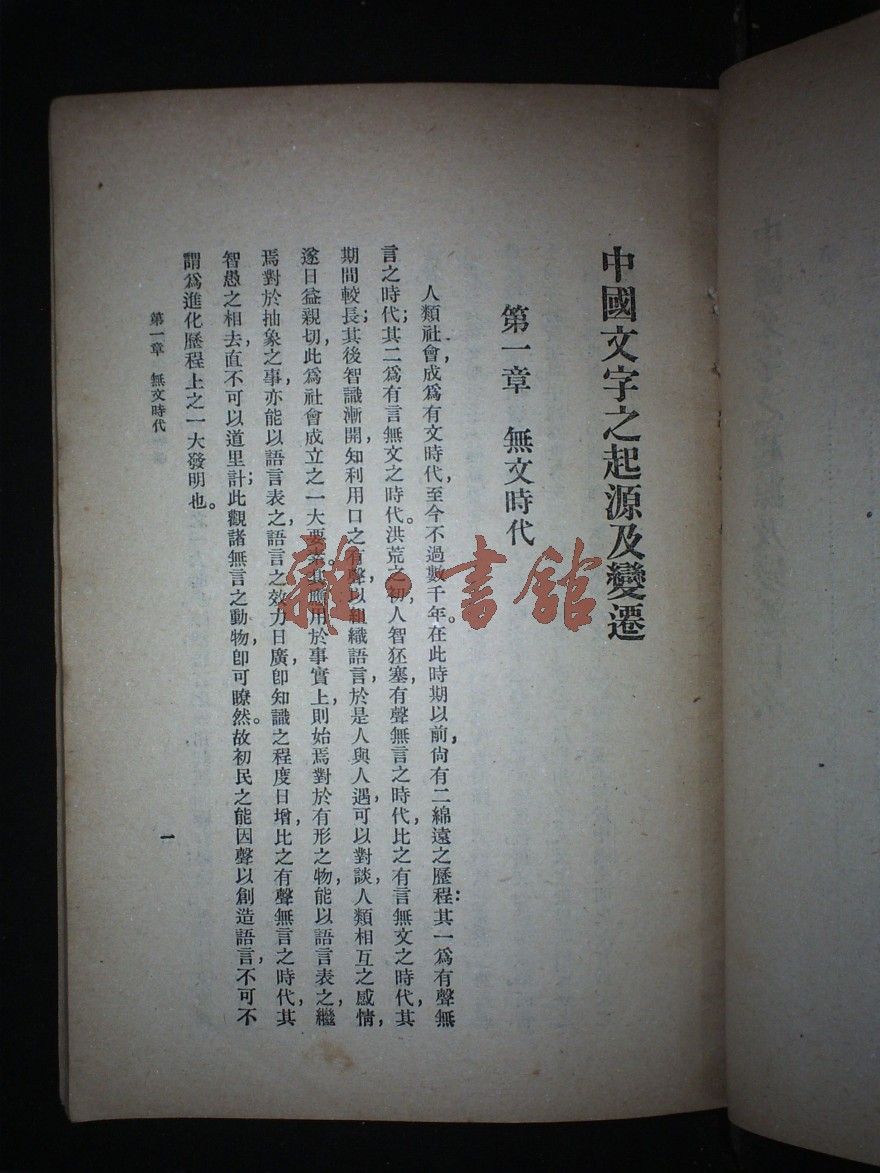 中國文字之起源及變遷
第一章 無文時代
人類社會成爲有文時代，至今不過數千年。在此時期以前，尙有二綿遠之歷程：其一爲有聲無
言之時代；其二爲有言無文之時代。洪荒之初，人智狉塞，有聲無言之時代，比之有言無文之時代，其
期間較長。其後智識漸開，知利用口之有聲，以組織語言，於是人與人遇，可以對談，人類相互之感情，
遂日益親切，此爲社會成立之一大要素。其應用於事實上，則始焉對於有形之物，能以語言表之，繼
焉對於抽象之事，亦能以語言表之，語言之效力日廣，卽知識之程度日增，比之有聲無言之時代，其
智愚之相去，直不可以道里計；此觀諸無言之動物，卽可瞭然。故初民之能因聲以創造語言，不可不
謂爲進化歷程上之一大發明也。
第一章 無文時代
一
雜·書館